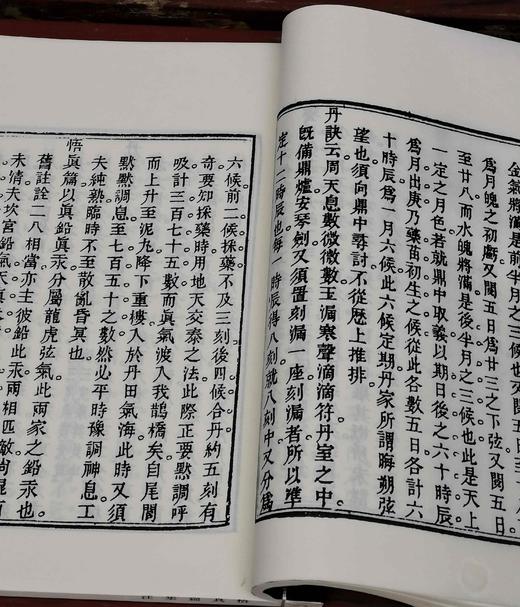 金氣將滿是前半月之三候也又閱五日
爲月魄之初虧又閱五日爲廿三之下弦又閱五日
至廿八而水魄將滿是後半月之三候也此是天上
一定之月色若就鼎中取義以期日後之六十時辰
爲月出庚乃藥苗初生之候從此各數五日各計六
十時辰爲一月六候此六候定期丹家所謂晦朔弦
望也須向鼎中尋討不從歴上推排
丹訣云周天息數微微數玉漏寒聲滴滴符丹室之中
既備鼎爐安琴劍又須置刻漏一座刻漏者所以準
定十二時辰也每一時辰得八刻就八刻中又分爲
六候前二候採藥不及三刻後四候合丹約五刻有
奇要知採藥時用地天交泰之法此際正要默調呼
吸計三百七十五數而眞氣渡入我鵲橋矣自尾閭
而上升至泥九降下重樓入於丹田氣海此時又須
默默調息至七百五十之數然必平時豫調神息工
夫純熟臨時不至散亂昏冥也
悟眞篇以眞鉛眞汞分屬龍虎弦氣此兩家之鉛汞也
舊註詮二八相當亦主彼鉛此汞兩相匹敵尚
未清夫坎宮鉛氣天